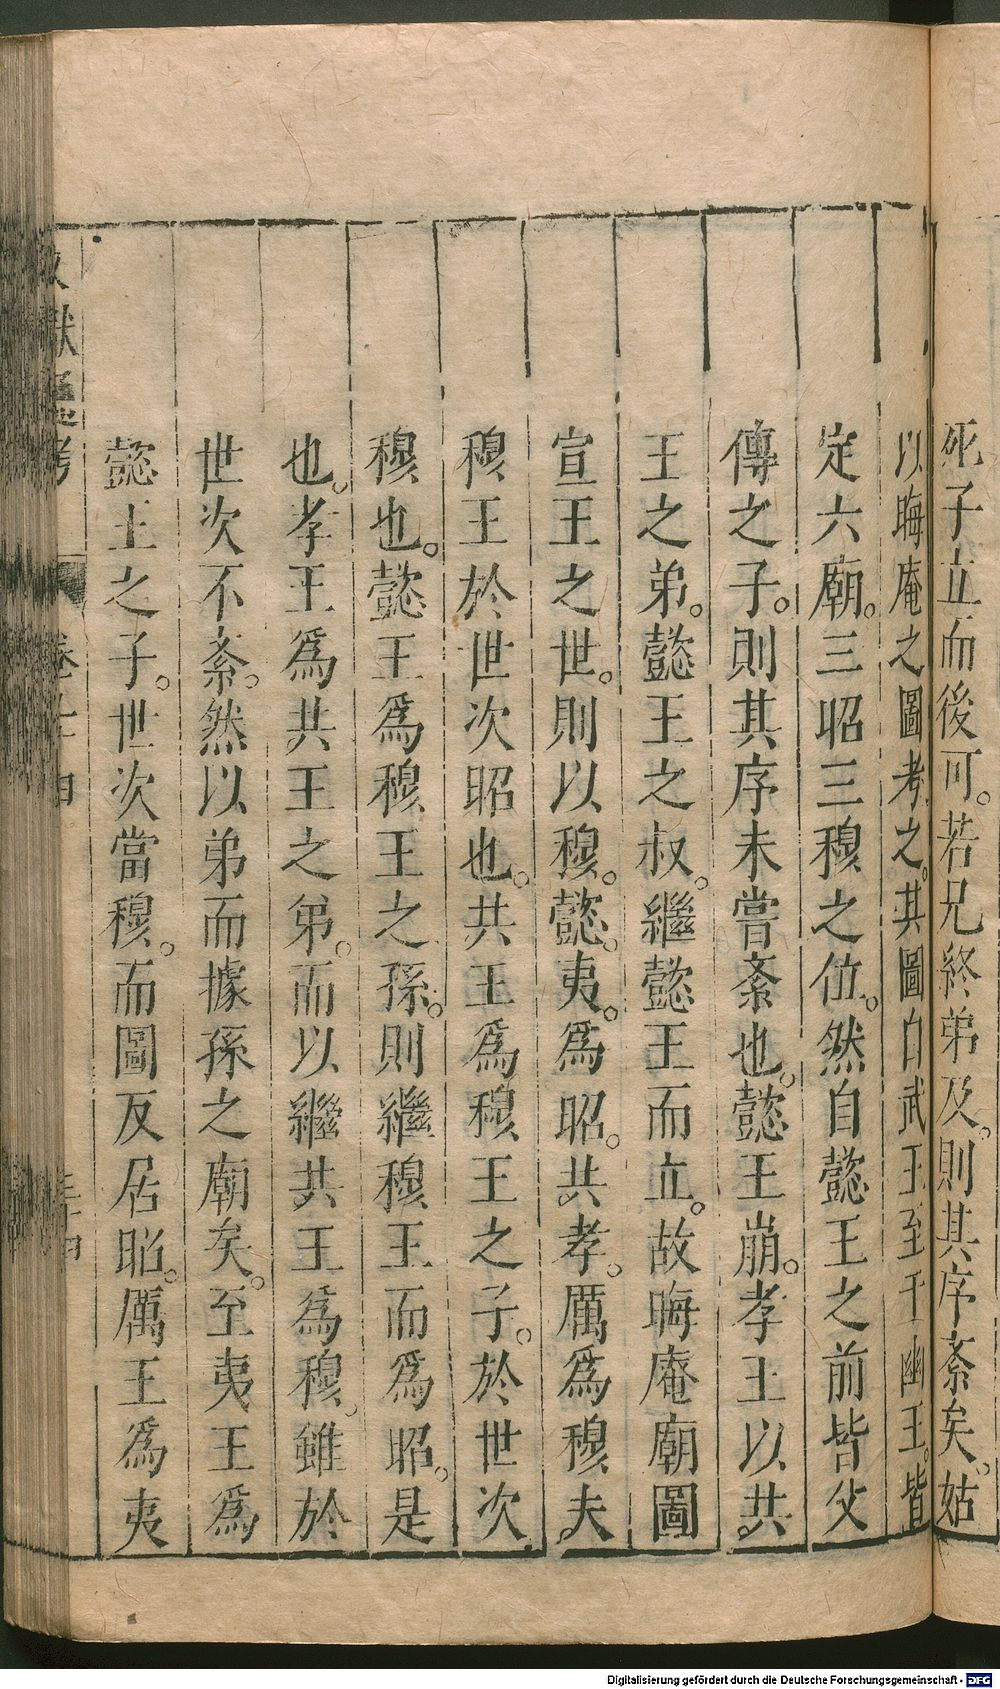 死子立而後可。若兄終弟及。則其序紊矣。姑
以晦庵之圖考之。其圖自武王至于幽王。皆
定六廟。三昭三穆之位。然自懿王之前皆父
傳之子。則其序未嘗紊也。懿王崩。孝王以共
王之弟。懿王之叔。繼懿王而立。故晦庵廟圖
宣王之世。則以穆。懿。夷。爲昭。共。孝。厲爲穆。夫
穆王於世次昭也。共王爲穆王之子。於世次
穆也。懿王爲穆王之孫。則繼穆王而爲昭。是
也。孝王爲共王之弟。而以繼共王爲穆。雖於
世次不紊。然以弟而據孫之廟矣。至夷王爲
懿王之子。世次當穆。而圖反居昭。厲王爲夷
獻
考
Digitalisierung gefördert durch die Deutsche Forschungsgemeinschaft - DFG